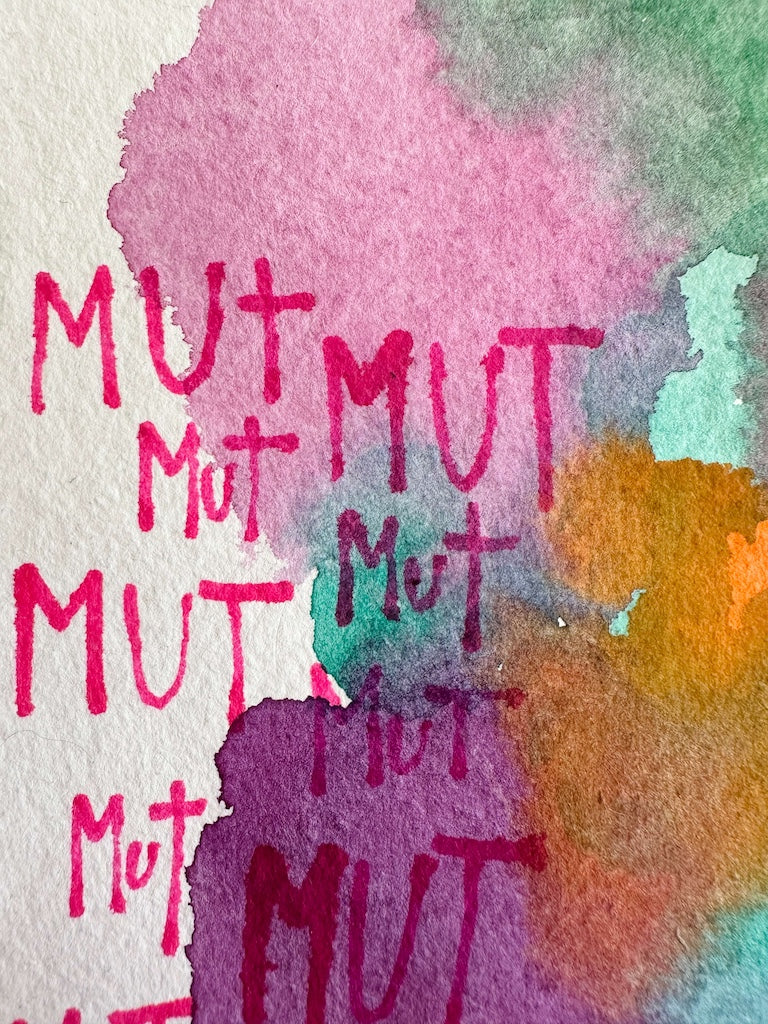 MUt MUT
Mut
Mut
MUT
MuT
Mut
MUT